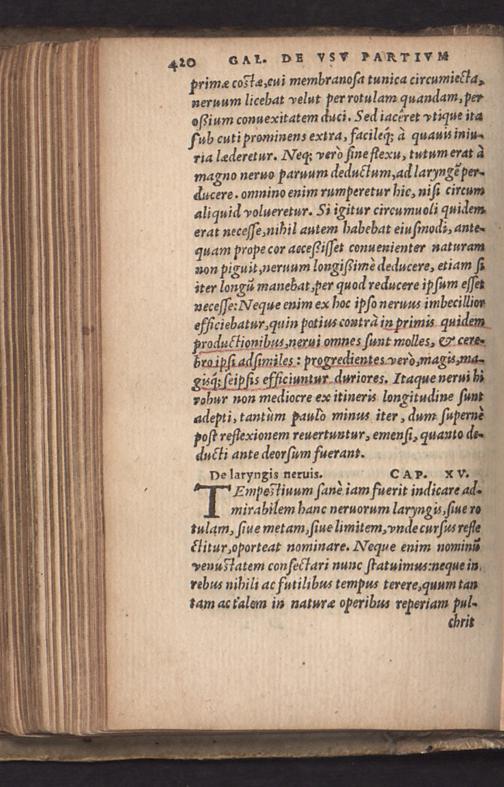 420 GAL. DE VSV PARTIVM
primæ costæ, cui membranosa tunica circumiecta,
neruum licebat velut per rotulam quandam, per
oßium conuexitatem duci. Sed iacêret vtique ita
sub cuti prominens extra, facileq́; à quauis iniu-
ria læderetur. Neq; verò sine flexu, tutum erat à
magno neruo paruum deductum, ad laryngē per-
ducere. omnino enim rumperetur hic, nisi circum
aliquid volueretur. Si igitur circumuolui quidem
erat necesse, nihil autem habebat eiusmodi, ante-
quam prope cor acceßisset conuenienter naturam
non piguit, neruum longißimè deducere, etiam si
iter longū manebat, per quod reducere ipsum esset
necesse: Neque enim ex hoc ipso neruus imbecillior
efficiebatur, quin potius contrà in primis quidem
productionibus, nerui omnes sunt molles, & cere-
bro ipsi adsimiles: progredientes verò, magis, ma-
gisq́; seipsis efficiuntur duriores. Itaque nerui hi
robur non mediocre ex itineris longitudine sunt
adepti, tantùm paulo minus iter, dum supernè
post reflexionem reuertuntur, emensi, quanto de-
ducti ante deorsum fuerant.
De laryngis neruis. CAP. XV.
TEmpestiuum sanè iam fuerit indicare ad-
mirabilem hanc neruorum laryngis, siue ro
tulam, siue metam, siue limitem, vnde cursus refle
ctitur, oporteat nominare. Neque enim nominū
venustatem consectari nunc statuimus: neque in
rebus nihili ac futilibus tempus terere, quum tan
tam ac talem in naturæ operibus reperiam pul-
chrit